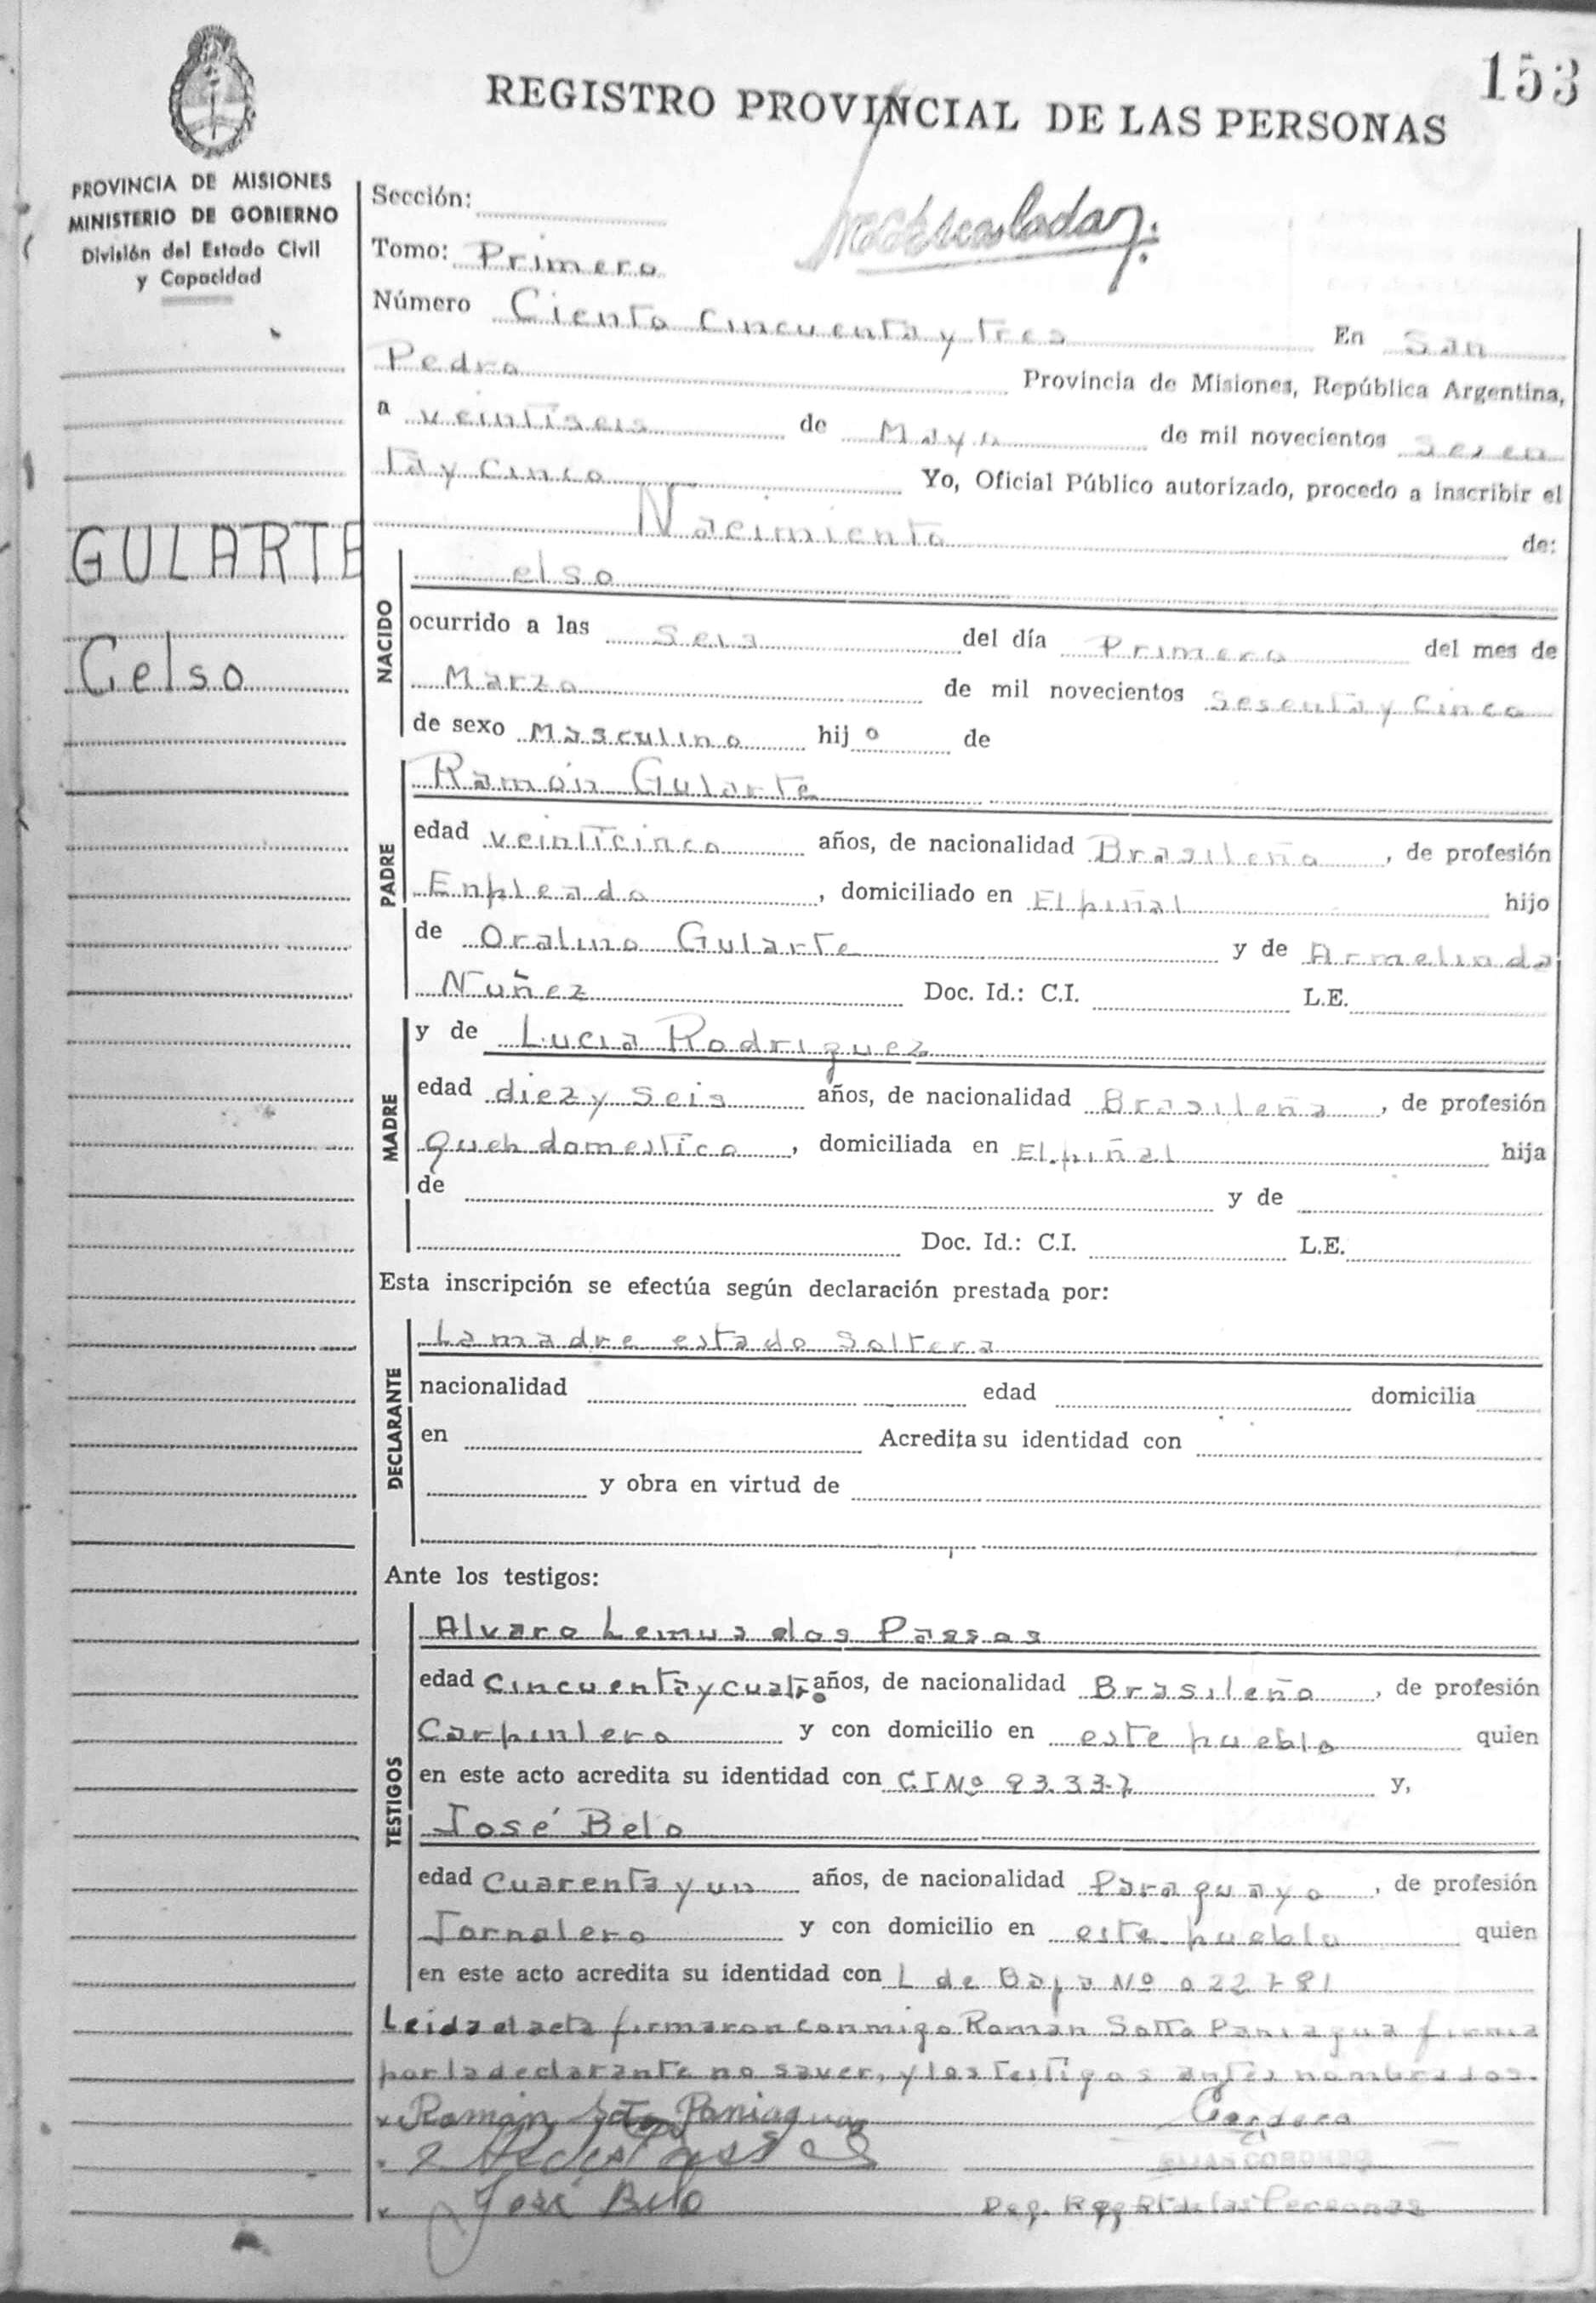 153
REGISTRO PROVINCIAL DE LAS PERSONAS
PROVINCIA DE MISIONES
MINISTERIO DE GOBIERNO
División del Estado Civil
y Capacidad
Sección:
Tomo: Primero
Número Ciento Cincuenta y tres En San
Pedro Provincia de Misiones, República Argentina,
a veintiseis de Mayo de mil novecientos Sesen
ta y Cinco Yo, Oficial Público autorizado, procedo a inscribir el
Nacimiento de:
GULARTE
Celso
NACIDO
elso
ocurrido a las Seis del día Primero del mes de
Marzo de mil novecientos Sesenta y Cinco
de sexo Masculino hij o de
PADRE
Ramón Gularte
edad veinticinco años, de nacionalidad Brasileña, de profesión
Enpleado, domiciliado en El piñal hijo
de Oralino Gularte y de Armelinda
Nuñez Doc. Id.: C.I. L.E.
MADRE
y de Lucia Rodriguez
edad diez y seis años, de nacionalidad Brasileña, de profesión
queh domestico, domiciliada en El piñal hija
de y de
Doc. Id.: C.I. L.E.
Esta inscripción se efectúa según declaración prestada por:
DECLARANTE
La madre estado Soltera
nacionalidad edad domicilia
en Acredita su identidad con
y obra en virtud de
Ante los testigos:
TESTIGOS
Alvaro Lemus dos Passos
edad Cincuenta y cuatro años, de nacionalidad Brasileño, de profesión
Carpintero y con domicilio en este pueblo quien
en este acto acredita su identidad con C.I Nº 93.337 y,
José Belo
edad Cuarenta y un años, de nacionalidad Paraguayo, de profesión
Jornalero y con domicilio en este pueblo quien
en este acto acredita su identidad con L de Baja Nº 022781
Leida el acta firmaron conmigo Roman Sotto Paniagua firma
por la declarante no saver, y los testigos antes nombrados.
Roman Soto Paniagua
José Belo
Reg. Pl de las Personas